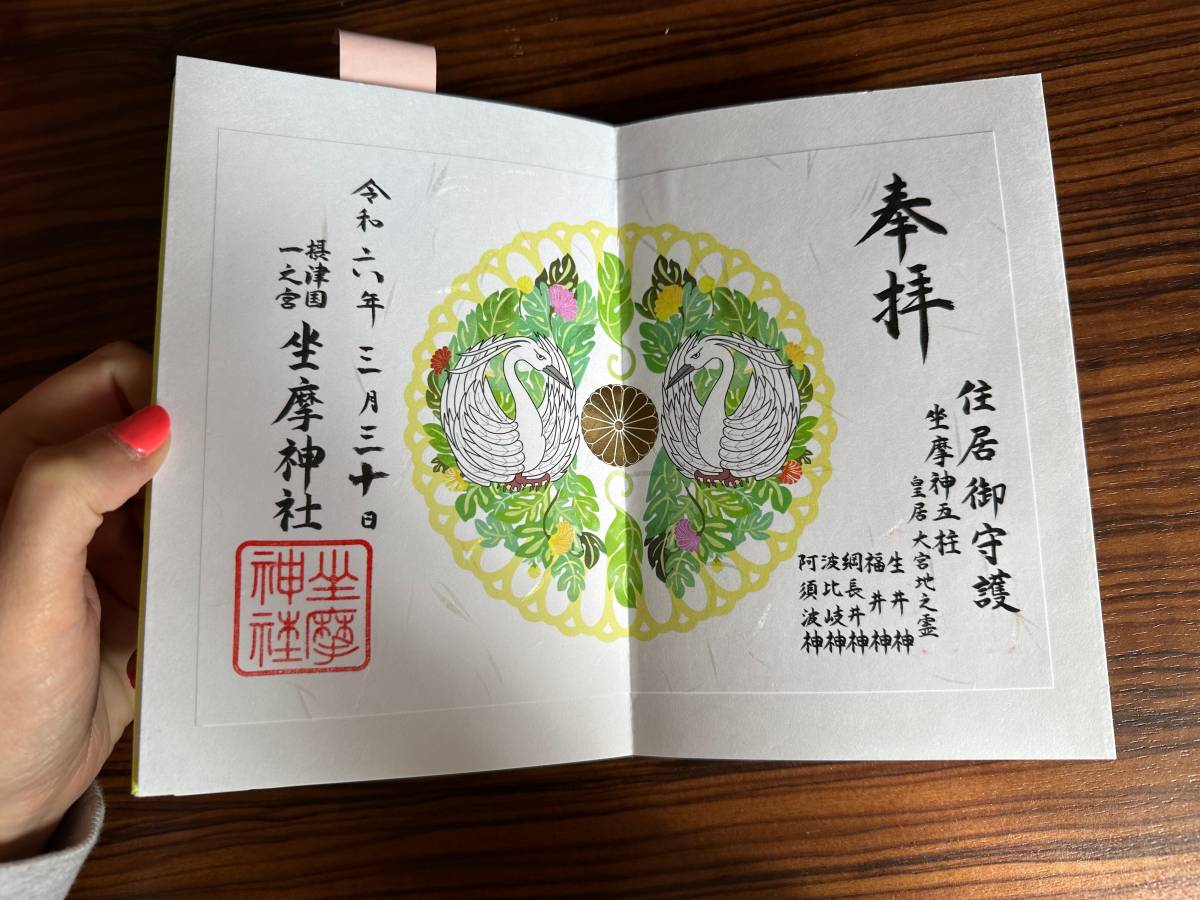 奉拝
住居御守護
坐摩神五柱
皇居
大宮地之霊
生井神
福井神
綱長井神
波比岐神
阿須波神
令和六年三月三十日
摂津国
一之宮
坐摩神社
坐摩
神社